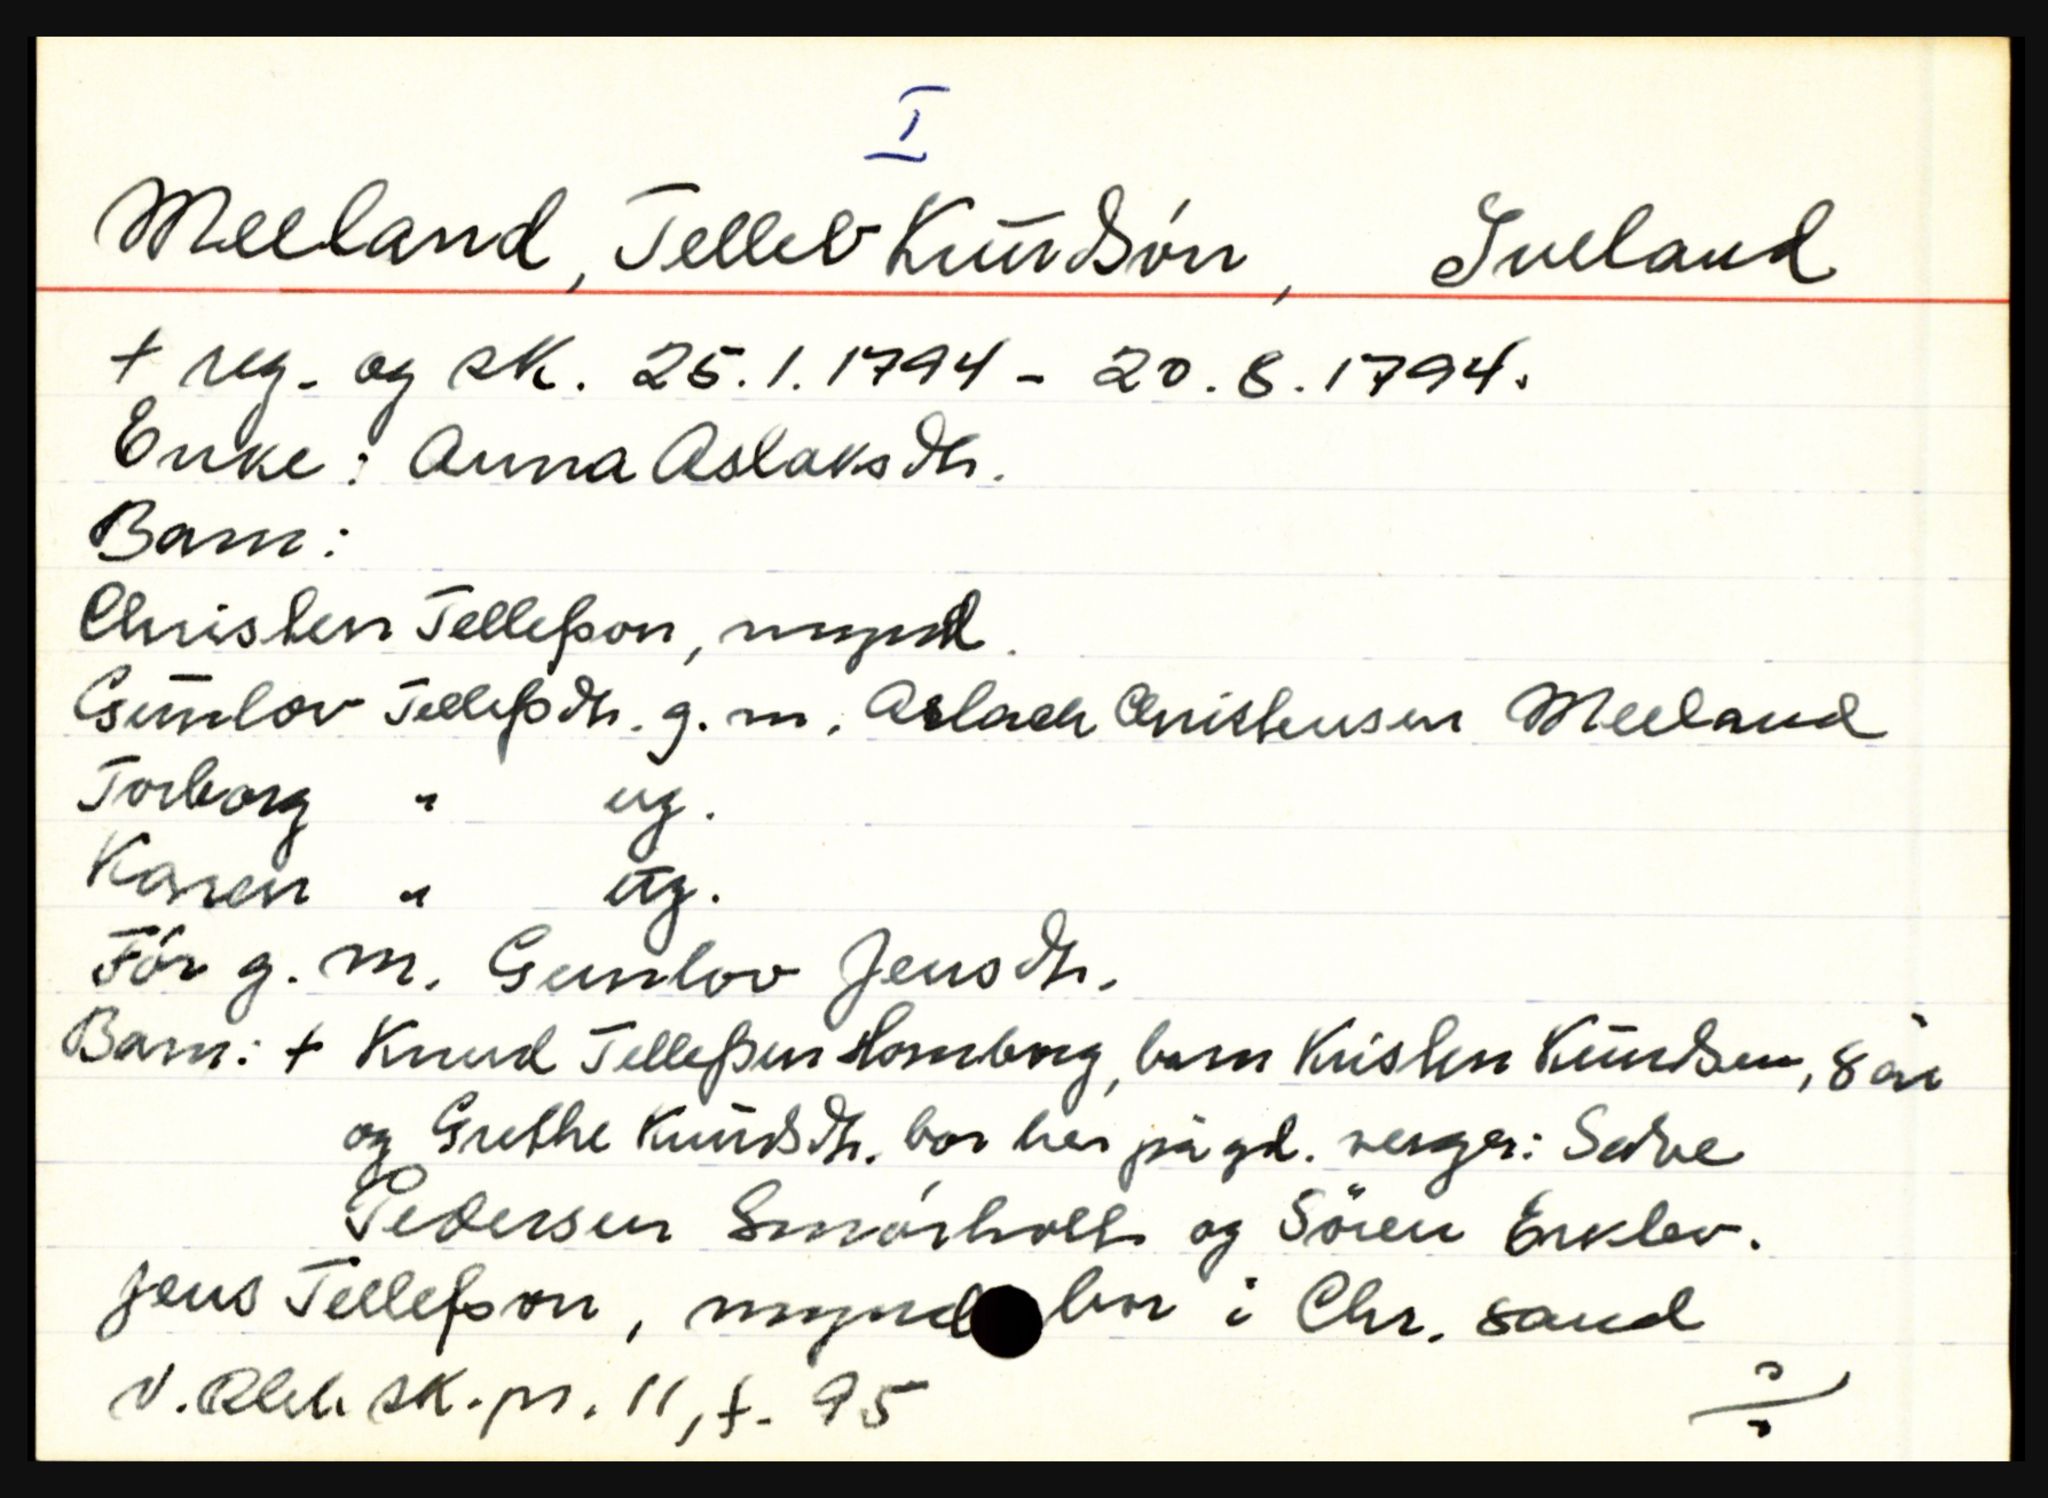 I
Meeland, Tellev Knudsøn, Iveland
+ reg. og sk. 25.1.1794 - 20.8.1794.
Enke: Anna Aslaksdtr.
Barn:
Christen Tellefsøn, mynd.
Gunlov Tellefsdtr. g.m. Aslach Christensen Meeland
Torborg " ug.
Karen " ug.
Før g. m. Gunlov Jensdtr.
Barn: + Knud Tellefsen Homborg, barn Kristen Knudsen, 8 år
og Grethe Knudsdtr. bor her på gd. verger: Salve
Pedersen Smørholt og Søren Erklev.
Jens Tellefsøn, mynd bor i Chr.sand
N. Rbk sk.pr. 11, f. 95